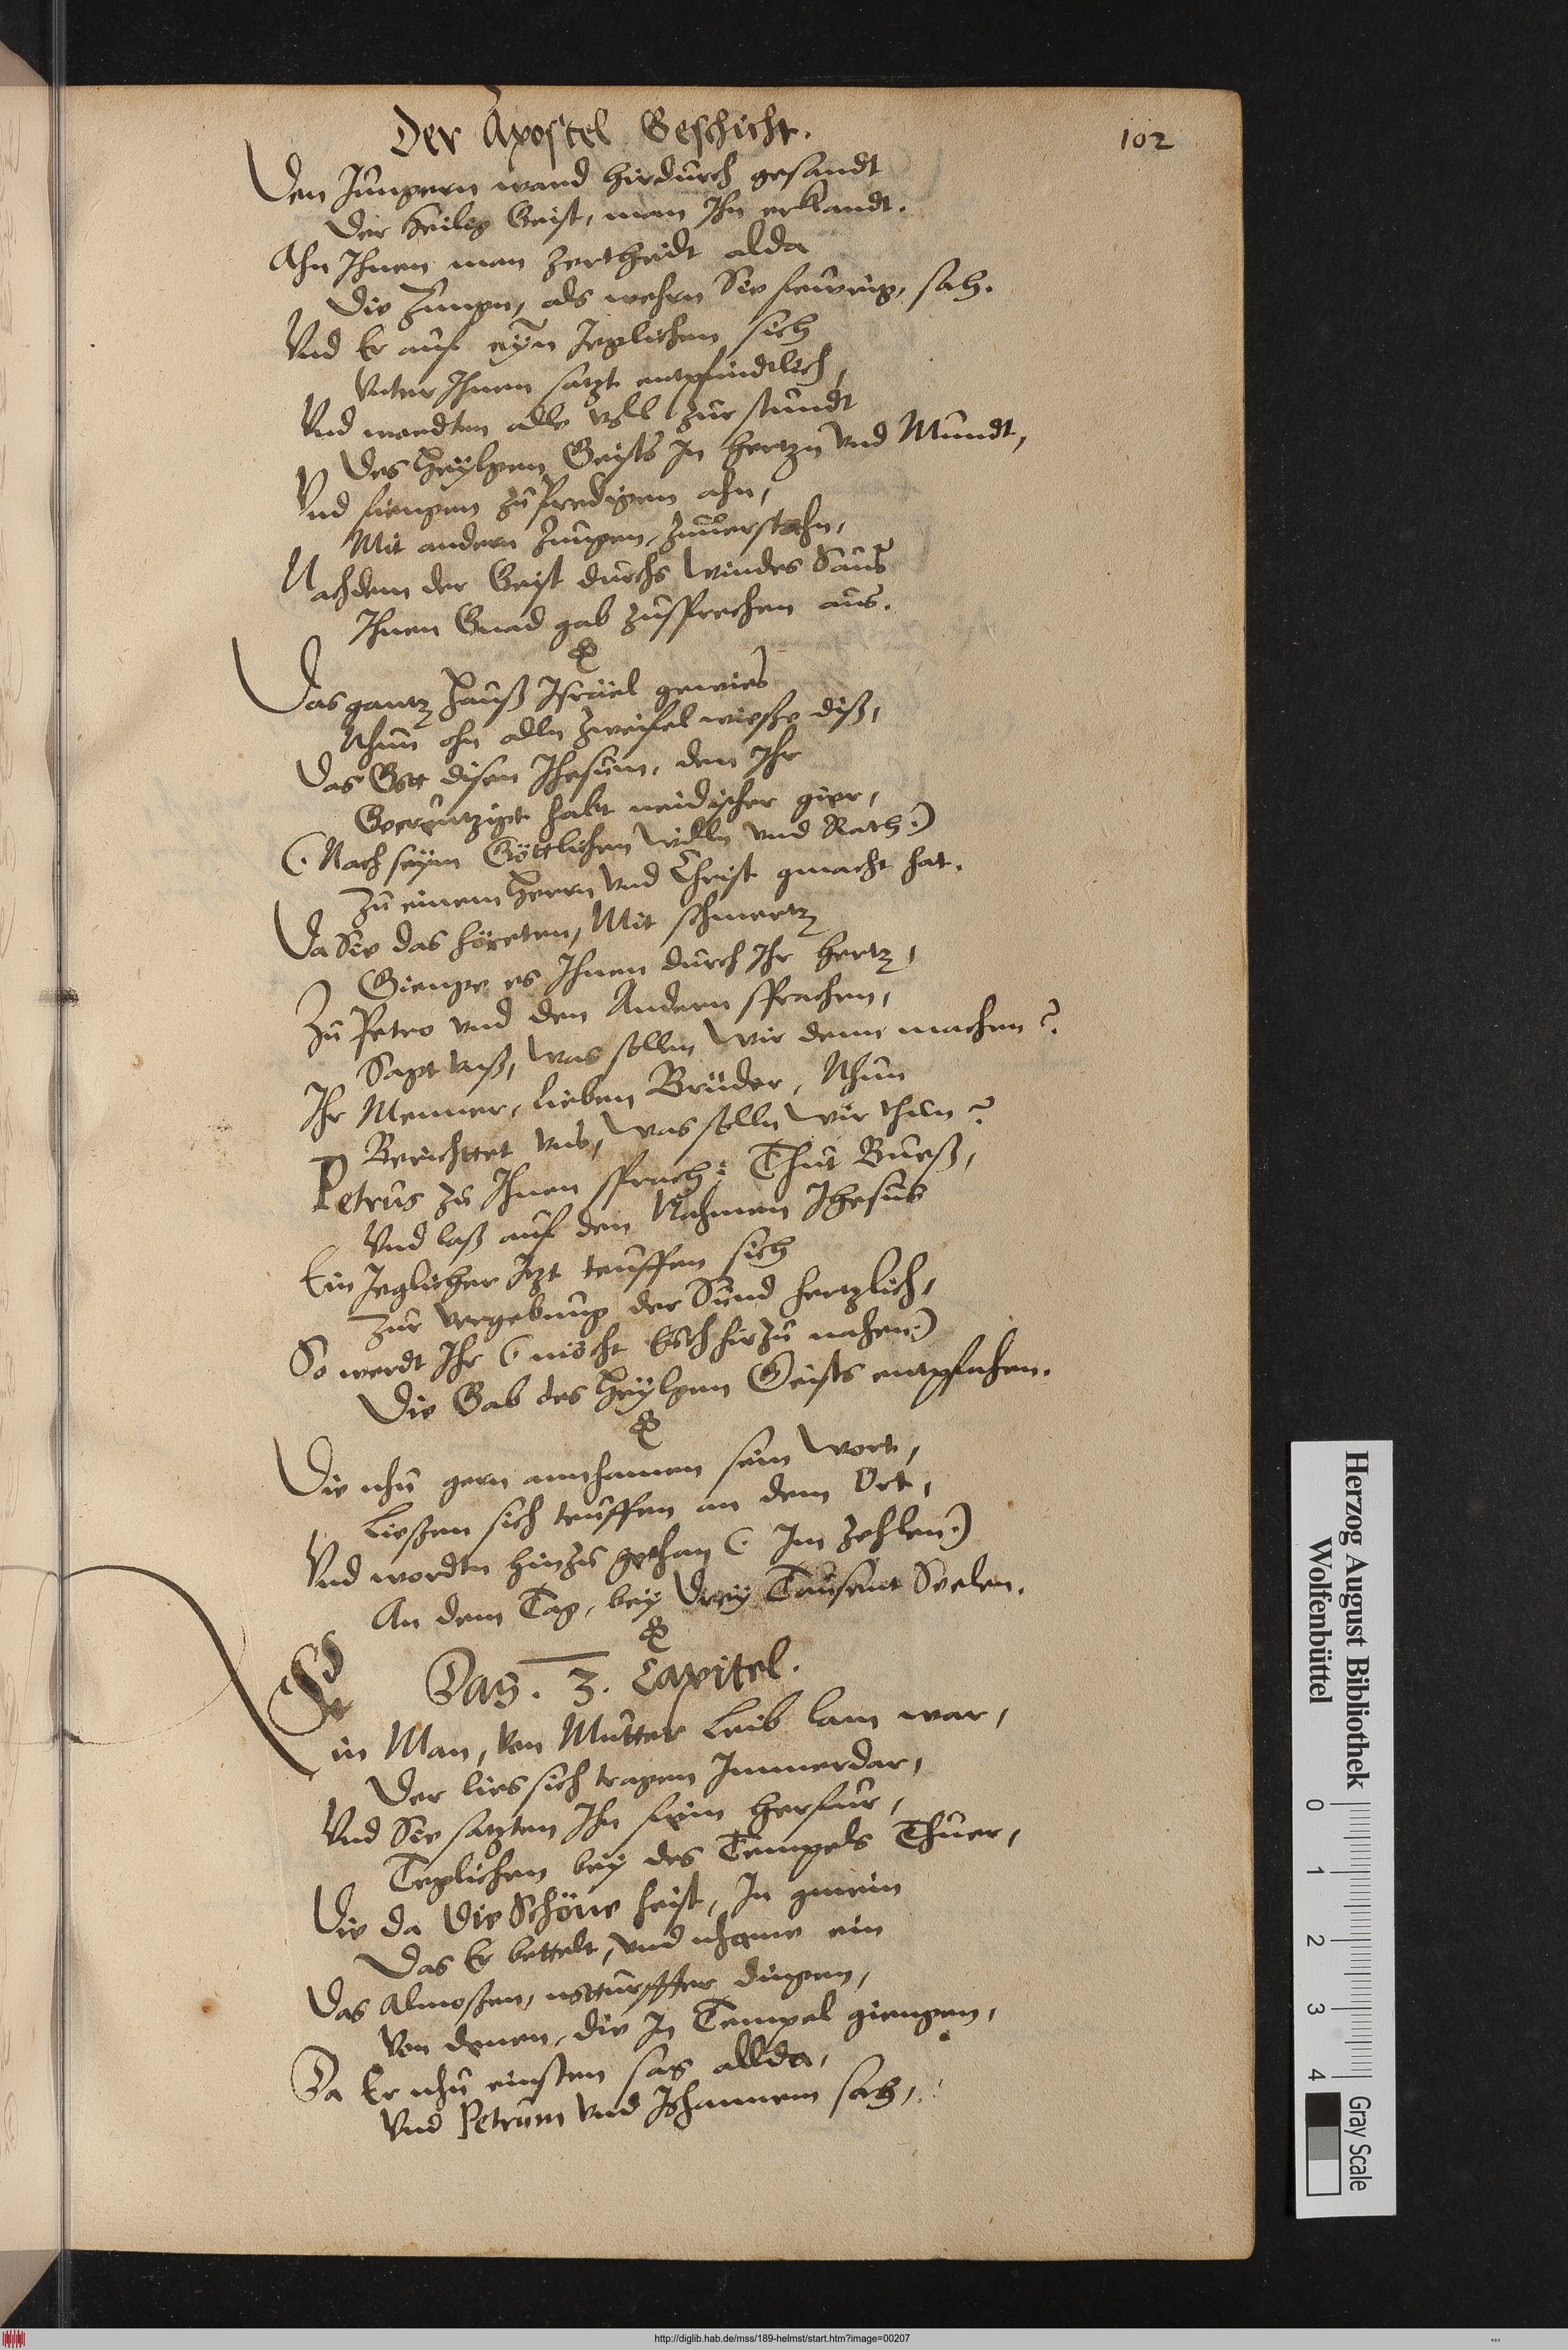 Der Apostel Geschicht.
102
Den Jungern ward hirdurch gesandt
Der heilig Geist, man Ihn erkandt.
Ahn Ihnen man zertheidt alda
Die Zungen, als wehrn Sie feurig, sah.
Vnd Er auf eÿn Jeglichen sich
Vnter Ihnen satzt entpfindtlich,
Vnd wordten alle voll zur stundt
Des Heÿlgen Geists In hertzn Vnd Mundt,
Vnd fiengen zu Predigen ahn,
Mit andern Zungen, zuuerstahn,
Nachdem der Geist durchs Windes Saus
Ihnen Gnad gab zusprechen aus.
Das gantz Hauß Israel gewies
Nhun ohn alln Zweifel wiesse diß,
Das Gott disen Ihesum, den Ihr
Gecreutzigt habt neidischer gier,
(Nach seÿm Göttlichen Willn vnd Rath)
Zu einem Herrn Vnd Christ gmacht hat.
Da Sie das höreten, Mit schmertz
Gienge es Ihnen durch Ihr hertz,
Zu Petro vnd den Andern sprachen,
Sagt vnß, Was sollen Wir denn machen?
Ihr Menner, lieben Brüder, Nhun
Berichtet vns, Was solln Wir thun?
Petrus zu Ihnen sprach: Thut Bueß,
Vnd laß auf den Nahmen Ihesus
Ein Jeglicher Itzt teuffen sich
Zur Vergebung der Sünd hertzlich,
So werdt Ihr (möcht Euch hirzu nahen)
Die Gab des Heÿlgen Geists entpfahen.
Die nhu gern annhamen sein Wort,
Liessen sich teuffen an dem Ort,
Vnd wordtn hinzu gethan (Im zehlen)
An dem Tag, beÿ Dreÿ Tausent Seelen.
Das. 3. Capitel.
Ein Man, Von Mutter Leib lam war,
Der lies sich tragen Immerdar,
Vnd Sie satzten Ihn fein herfür,
Teglichen beÿ des Tempels Thuer,
Die da Die Schöne heist, In gmein
Das Er bettelt, Vnd nhame ein
Das Almossen, notturffter dingen,
Von denen, die In Tempel giengen,
Da Er nhu einsten sas allda,
Vnd Petrum Vnd Johannem sah,
Herzog August Bibliothek
Wolfenbüttel
0 1 2 3 4
Gray Scale
http://diglib.hab.de/mss/189-helmst/start.htm?image=00207